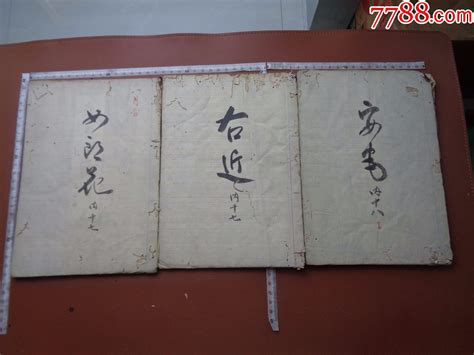 7788.com
女郎花
内十七
右近
内十七
安宅
内十八